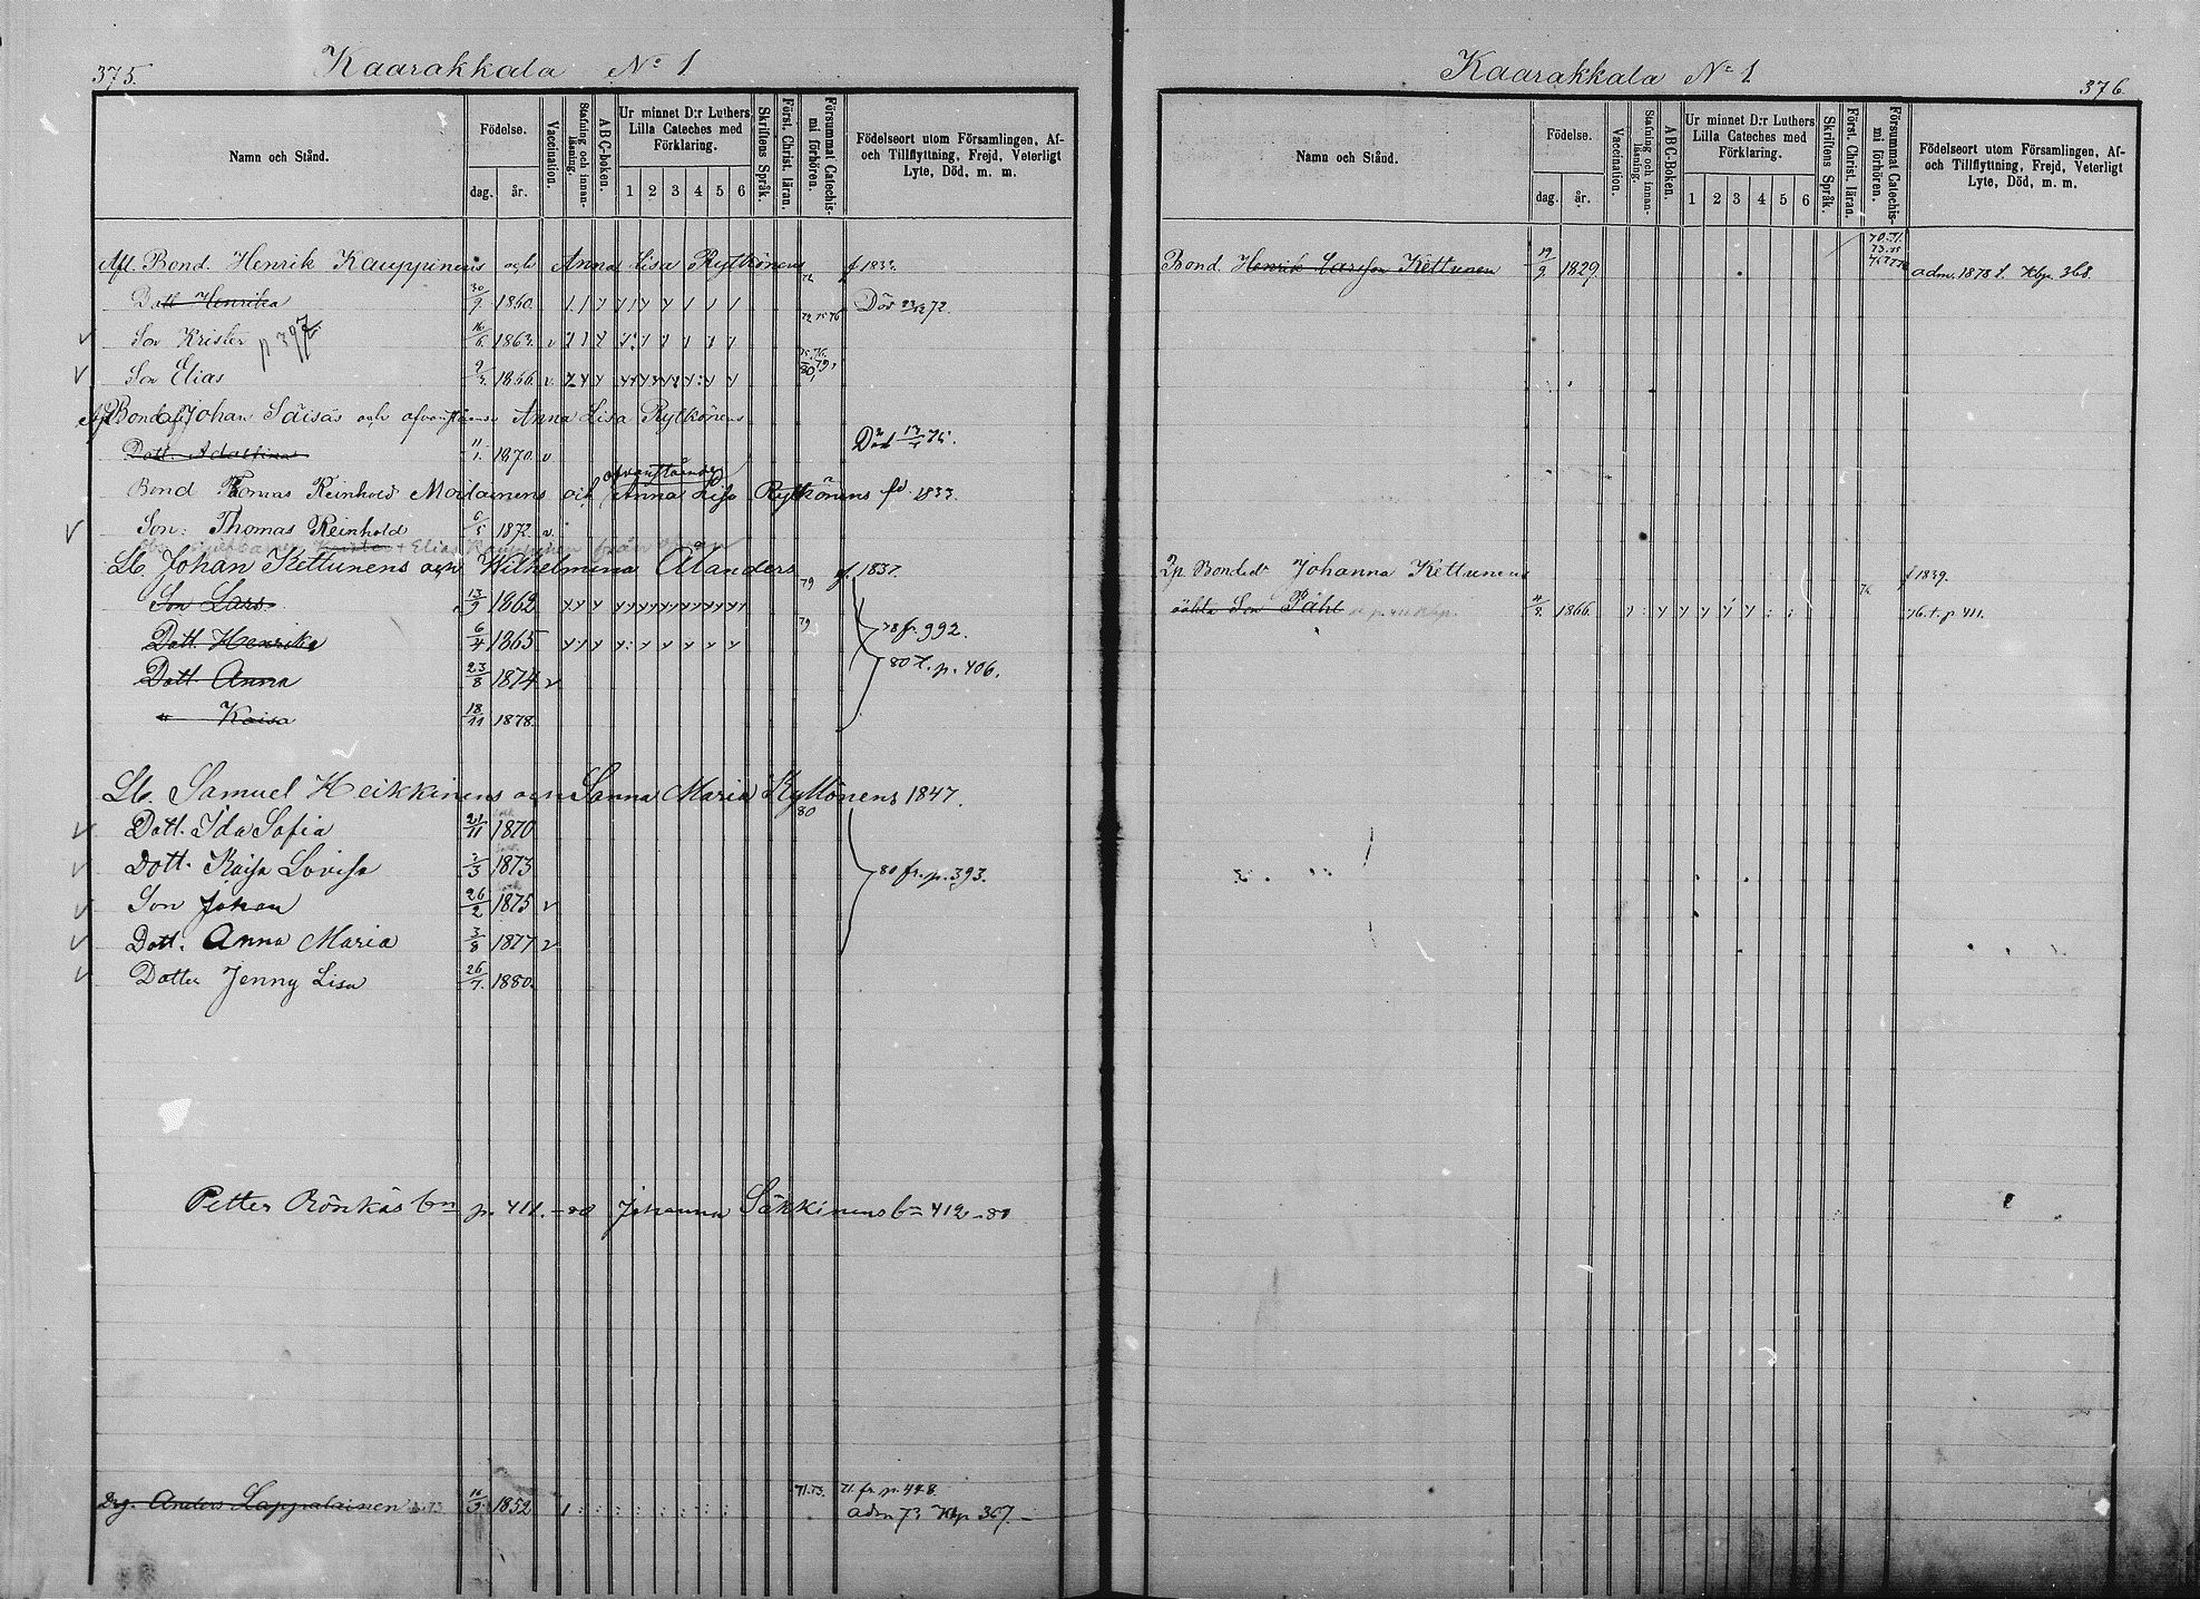 375.
Kaarakkala No 1
Namn och Stånd.
Födelse.
dag.
år.
Vaccination.
Stafning och innan-läsning.
ABC-boken.
Ur minnet D:r Luthers Lilla Cateches med Förklaring.
1 2 3 4 5 6
Skriftens Språk.
Först. Christ. läran.
Försummat Catechis-mi förhören.
Födelseort utom Församlingen, Af- och Tillflyttning, Frejd, Veterligt Lyte, Död, m. m.
Afl. Bond. Henrik Kauppinens och Anna Lisa Rytkönens f 1833.
Dott Henrika 30/9 1860. 72 Död 23/12 72.
Son Krister p 397 16/6 1863. v 72 75 76
Son Elias 9/3 1866 v. 75. 76. 79. 80,
Afl Bond Johan Säisäs och ofvanst Anna Lisa Rytkönens
Dott. Adolfina 11/1. 1870. v Död 13/1 75.
Bond Thomas Reinhold Moilanens och ofvanstående Anna Lisa Rytkönens fd 1833.
Son: Thomas Reinhold 6/5 1872. v.
Krister + Elias Kauppinen från
Lb. Johan Kettunens och Wilhelmina Ålanders f. 1837.
Son Lars 13/9 1862 79
Dott. Henrika 6/4 1865 79 78 fr. 992.
Dott. Anna 23/8 1874 v 80 t. p. 406.
" Kaisa 18/11 1878.
Lb. Samuel Heikkinens och Sanna Maria Rytkönens 1847.
80
Dott. Ida Sofia 21/11 1870
Dott. Kaisa Lovisa 3/3 1873 80 fr. p. 393.
Son Johan 26/2 1875 v
Dott. Anna Maria 3/8 1877 v
Dotter Jenny Lisa 26/7. 1880.
Petter Rönkäs bn p. 411. - 80 Johanna Säkkinens bn 412 - 80
Drg. Anders Lappalainen 16/9 1852 71. 73. 71. fr. p. 448.
adm 73 Kbp 367.
Kaarakkala No 1
376.
Namn och Stånd.
Födelse.
dag.
år.
Vaccination.
Stafning och innan-läsning.
ABC-Boken.
Ur minnet D:r Luthers Lilla Cateches med Förklaring.
1 2 3 4 5 6
Skriftens Språk.
Först. Christ. läran.
Försummat Catechis-mi förhören.
Födelseort utom Församlingen, Af- och Tillflyttning, Frejd, Veterligt Lyte, Död, m. m.
Bond. Henrik Larsson Kettunen 19/9 1829. 70. 71. adm. 1878 t. Kbp. 368.
Johanna Kettunens f 1839.
oäkta Son Påhl 1866. 76 76. t. p 411.